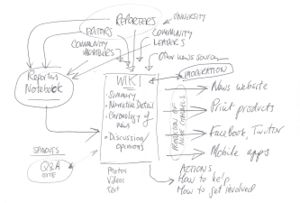 REPORTERS
EDITORS
UNIVERSITY
COMMUNITY
MEMBERS
COMMUNITY
LEADERS
Other news source
Reporters
Notebook
WIKI
MODERATION
• Summary
• Narrative Detail
• Chronology of
news
• Discussion/
opinions
News website
Print products
Facebook, Twitter
Mobile apps
Q&A
SITE
Photos
Videos
Text
ACTIONS
How to help
How to get involved